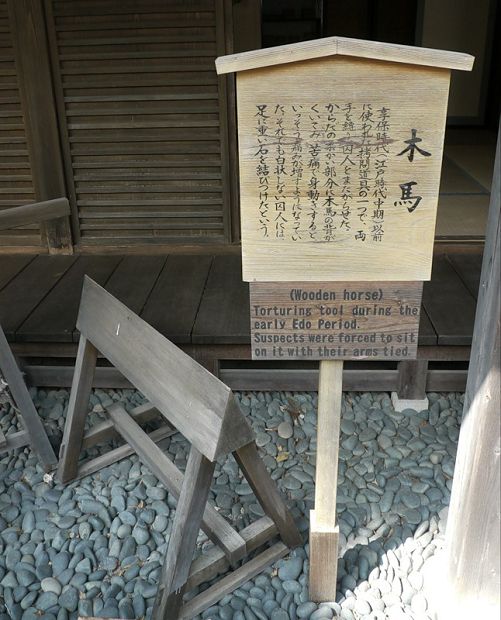 木馬
享保時代(江戸時代中期)以前
に使われた拷問道具の一つで、両
手を縛り囚人をまたがらせた。
からだの柔かい部分に木馬の背が
くいこみ、苦痛で身動きすると
いっそう痛みが増すようになってい
た。それでも白状しない囚人には、
足に重い石を結びつけたという。
(Wooden horse)
Torturing tool during the
early Edo Period.
Suspects were forced to sit
on it with their arms tied.